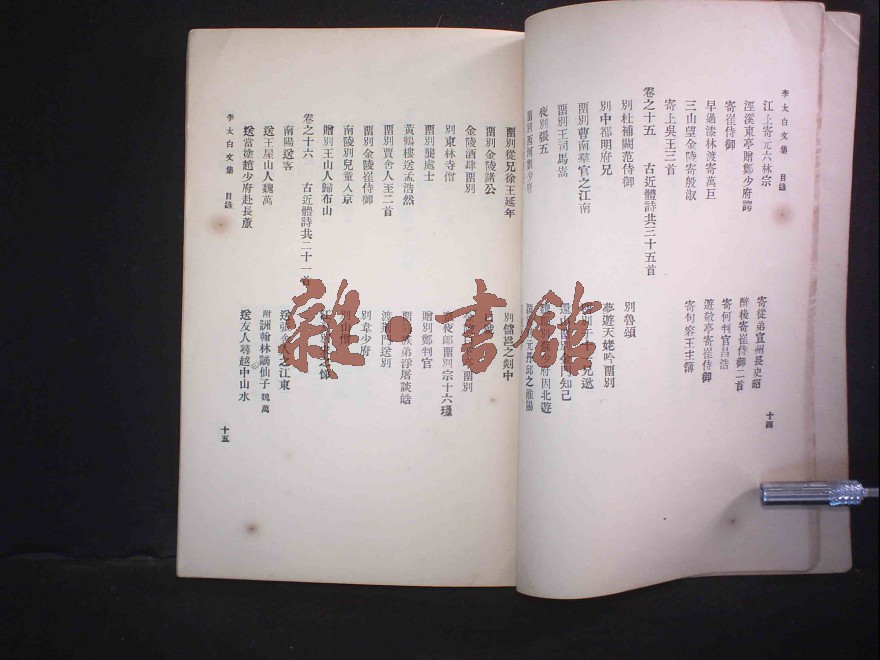 李太白文集 目錄
十四
江上寄元六林宗
寄從弟宣州長史昭
涇溪東亭贈鄭少府諤
醉後寄崔侍御二首
寄崔侍御
寄何判官昌浩
早過漆林渡寄萬巨
遊敬亭寄崔侍御
三山望金陵寄殷淑
寄句容王主簿
寄上吳王三首
卷之十五 古近體詩共三十五首
別杜補闕范侍御
別魯頌
別中都明府兄
夢遊天姥吟畱別
畱別曹南羣官之江南
畱別王司馬嵩
夜別張五
畱別從兄徐王延年
別儲邕之剡中
畱別金陵諸公
金陵酒肆畱別
別東林寺僧
畱別龔處士
贈別鄭判官
黃鶴樓送孟浩然
畱別賈舍人至二首
渡荆門送別
畱別金陵崔侍御
別韋少府
南陵別兒童入京
別山僧
贈別王山人歸布山
卷之十六 古近體詩共二十一首
南陽送客
送王屋山人魏萬
附 詶翰林謫仙子 魏萬
送當塗趙少府赴長蘆
送友人尋越中山水
李太白文集 目錄
十五
雜·書館